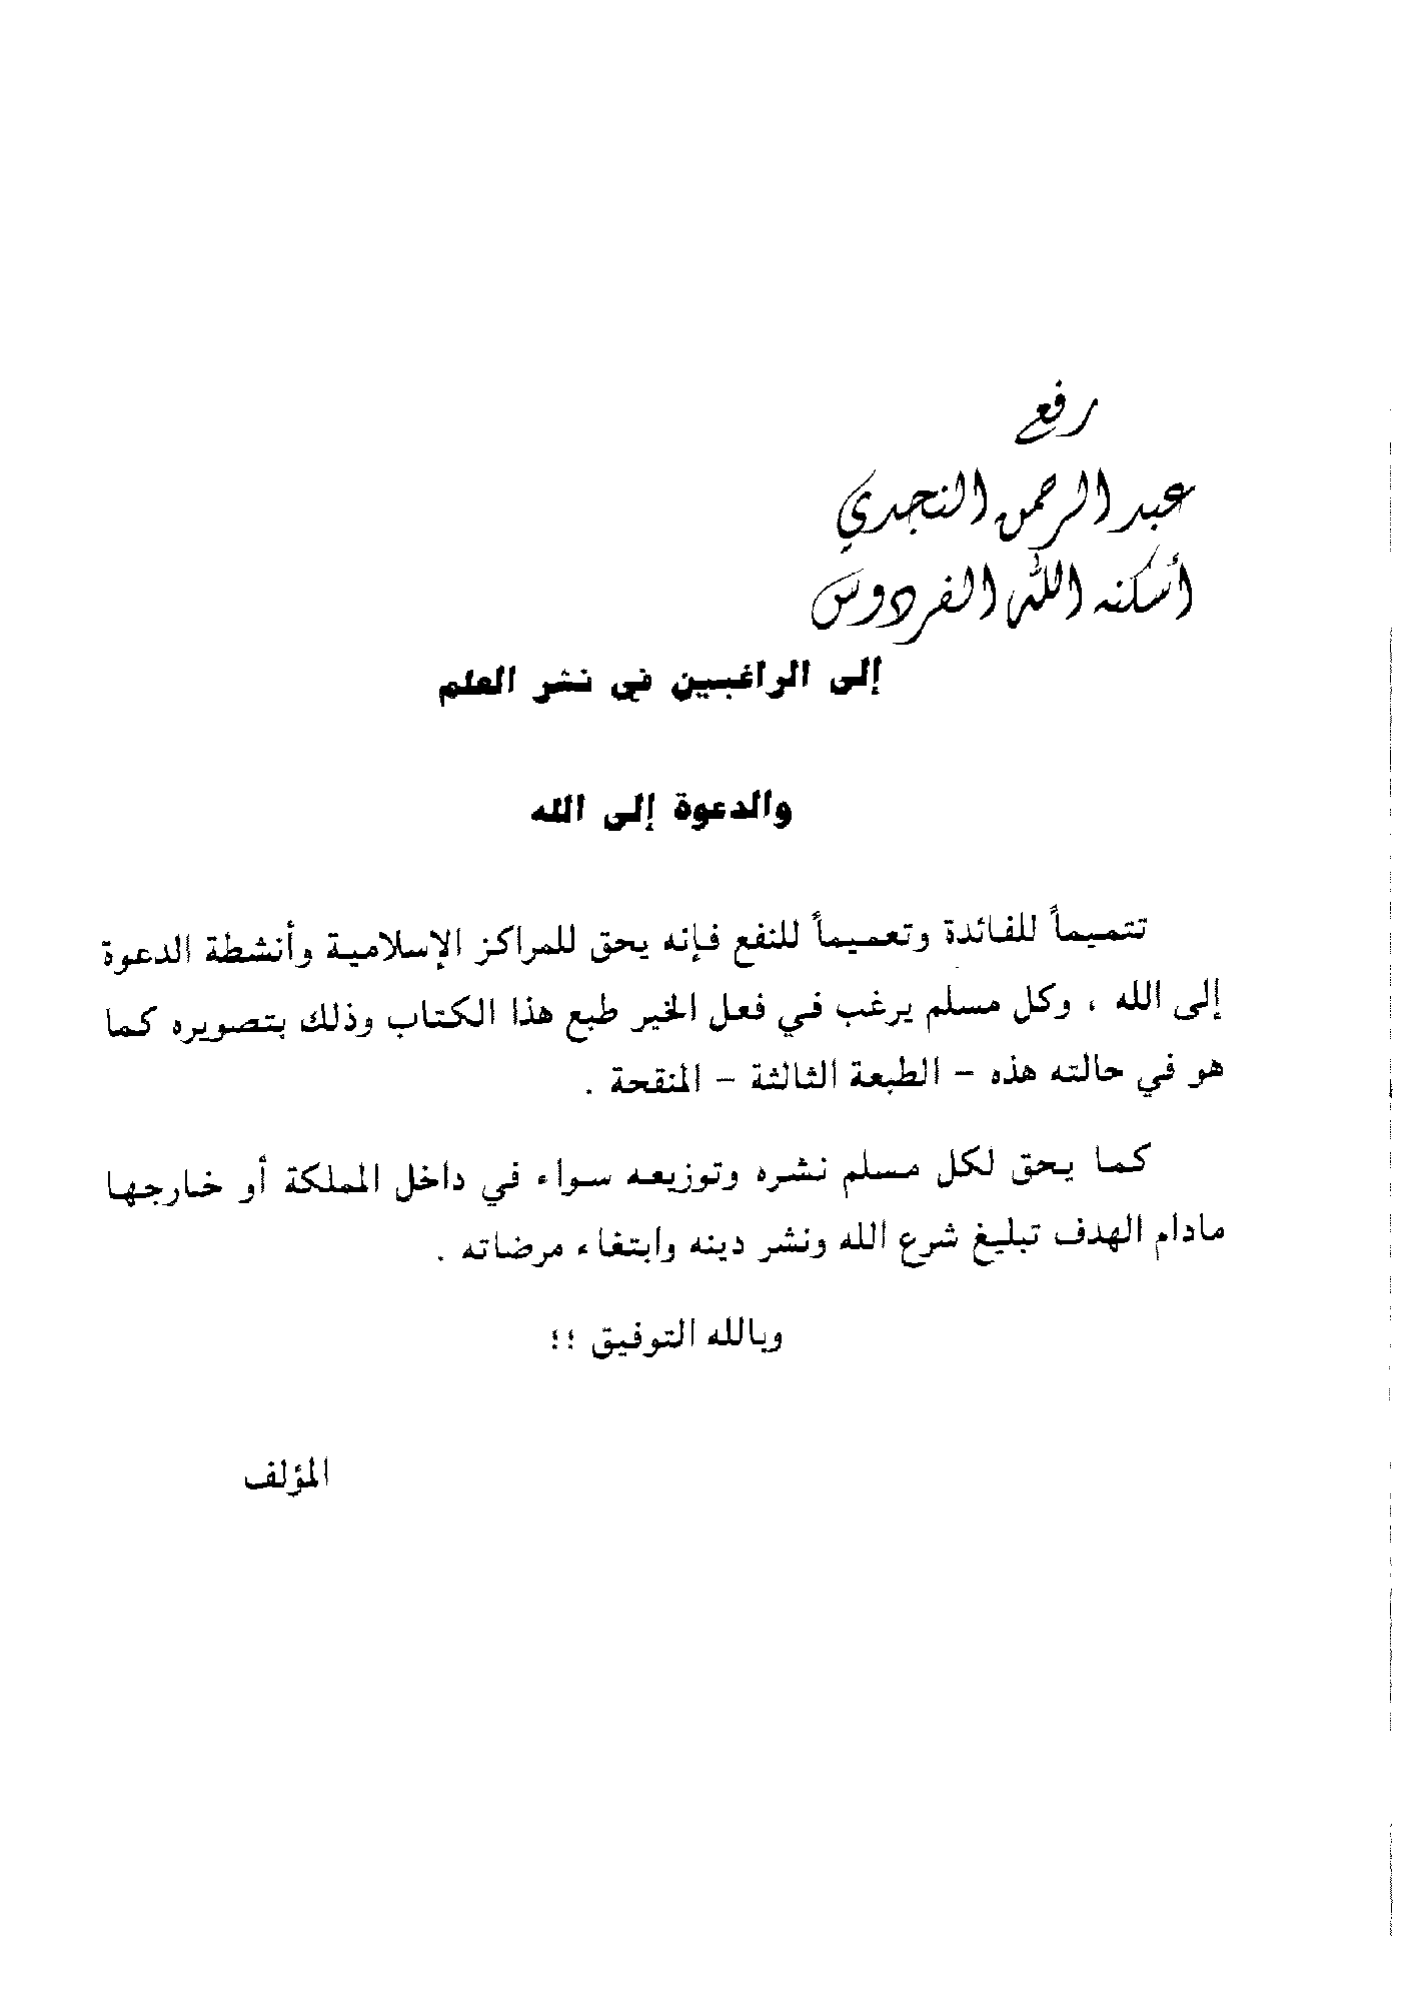 رفع
عبد الرحمن النجدي
أسكنه الله الفردوس
إلى الراغبين في نشر العلم
والدعوة إلى الله
تتميماً للفائدة وتعميماً للنفع فإنه يحق للمراكز الإسلامية وأنشطة الدعوة
إلى الله ، وكل مسلم يرغب في فعل الخير طبع هذا الكتاب وذلك بتصويره كما
هو في حالته هذه – الطبعة الثالثة – المنقحة .
كما يحق لكل مسلم نشره وتوزيعه سواء في داخل المملكة أو خارجها
مادام الهدف تبليغ شرع الله ونشر دينه وابتغاء مرضاته .
وبالله التوفيق ؛؛
المؤلف